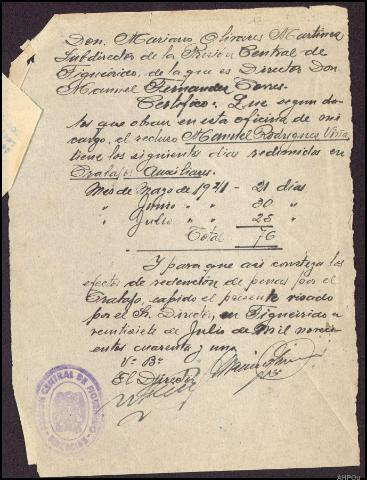 Don. Mariano Olivares Martinez
Subdirector de la Prisión Central de
Figueirido, de la que es Director Don
Manuel Fernandez Torres.
Certifico: Que segun da-
tos que obran en esta oficina de mi
cargo, el recluso Manuel Rodriguez
tiene los siguientes dias redimidos en
Trabajos Auxiliares.
Mes de Mayo de 1941 - 21 dias
" Junio " " 30 "
" Julio " " 25 "
Total 76
Y para que asi conste y a los
efectos de redención de penas por el
Trabajo, expido el presente visado
por el Sr. Director, en Figueirido a
veintisiete de Julio de Mil noveci
entos cuarenta y uno
Vº Bº
El Director
PRISION CENTRAL DE FIGUEIRIDO
AHPOu